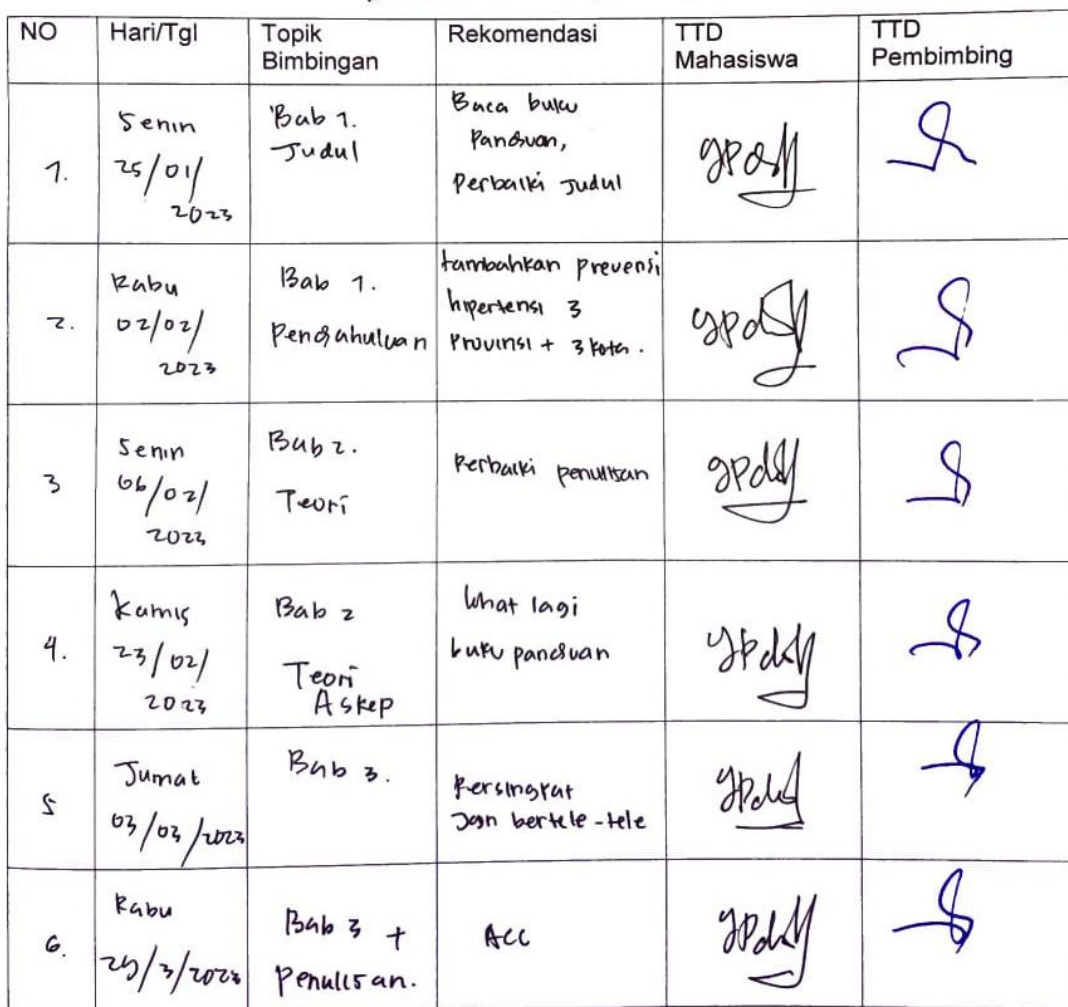 NO Hari/Tgl Topik Bimbingan Rekomendasi TTD Mahasiswa TTD Pembimbing
1. Senin 25/01/2023 Bab 1. Judul Baca buku Panduan, Perbaiki Judul
2. Rabu 02/02/2023 Bab 1. Pendahuluan tambahkan prevensi hipertensi 3 Provinsi + 3 kota.
3 Senin 06/02/2023 Bab 2. Teori Perbaiki penulisan
4. Kamis 23/02/2023 Bab 2 Teori Askep lihat lagi buku panduan
5 Jumat 03/03/2023 Bab 3. Persingkat Jgn bertele-tele
6. Rabu /3/2023 Bab 3 + Penulisan. ACC